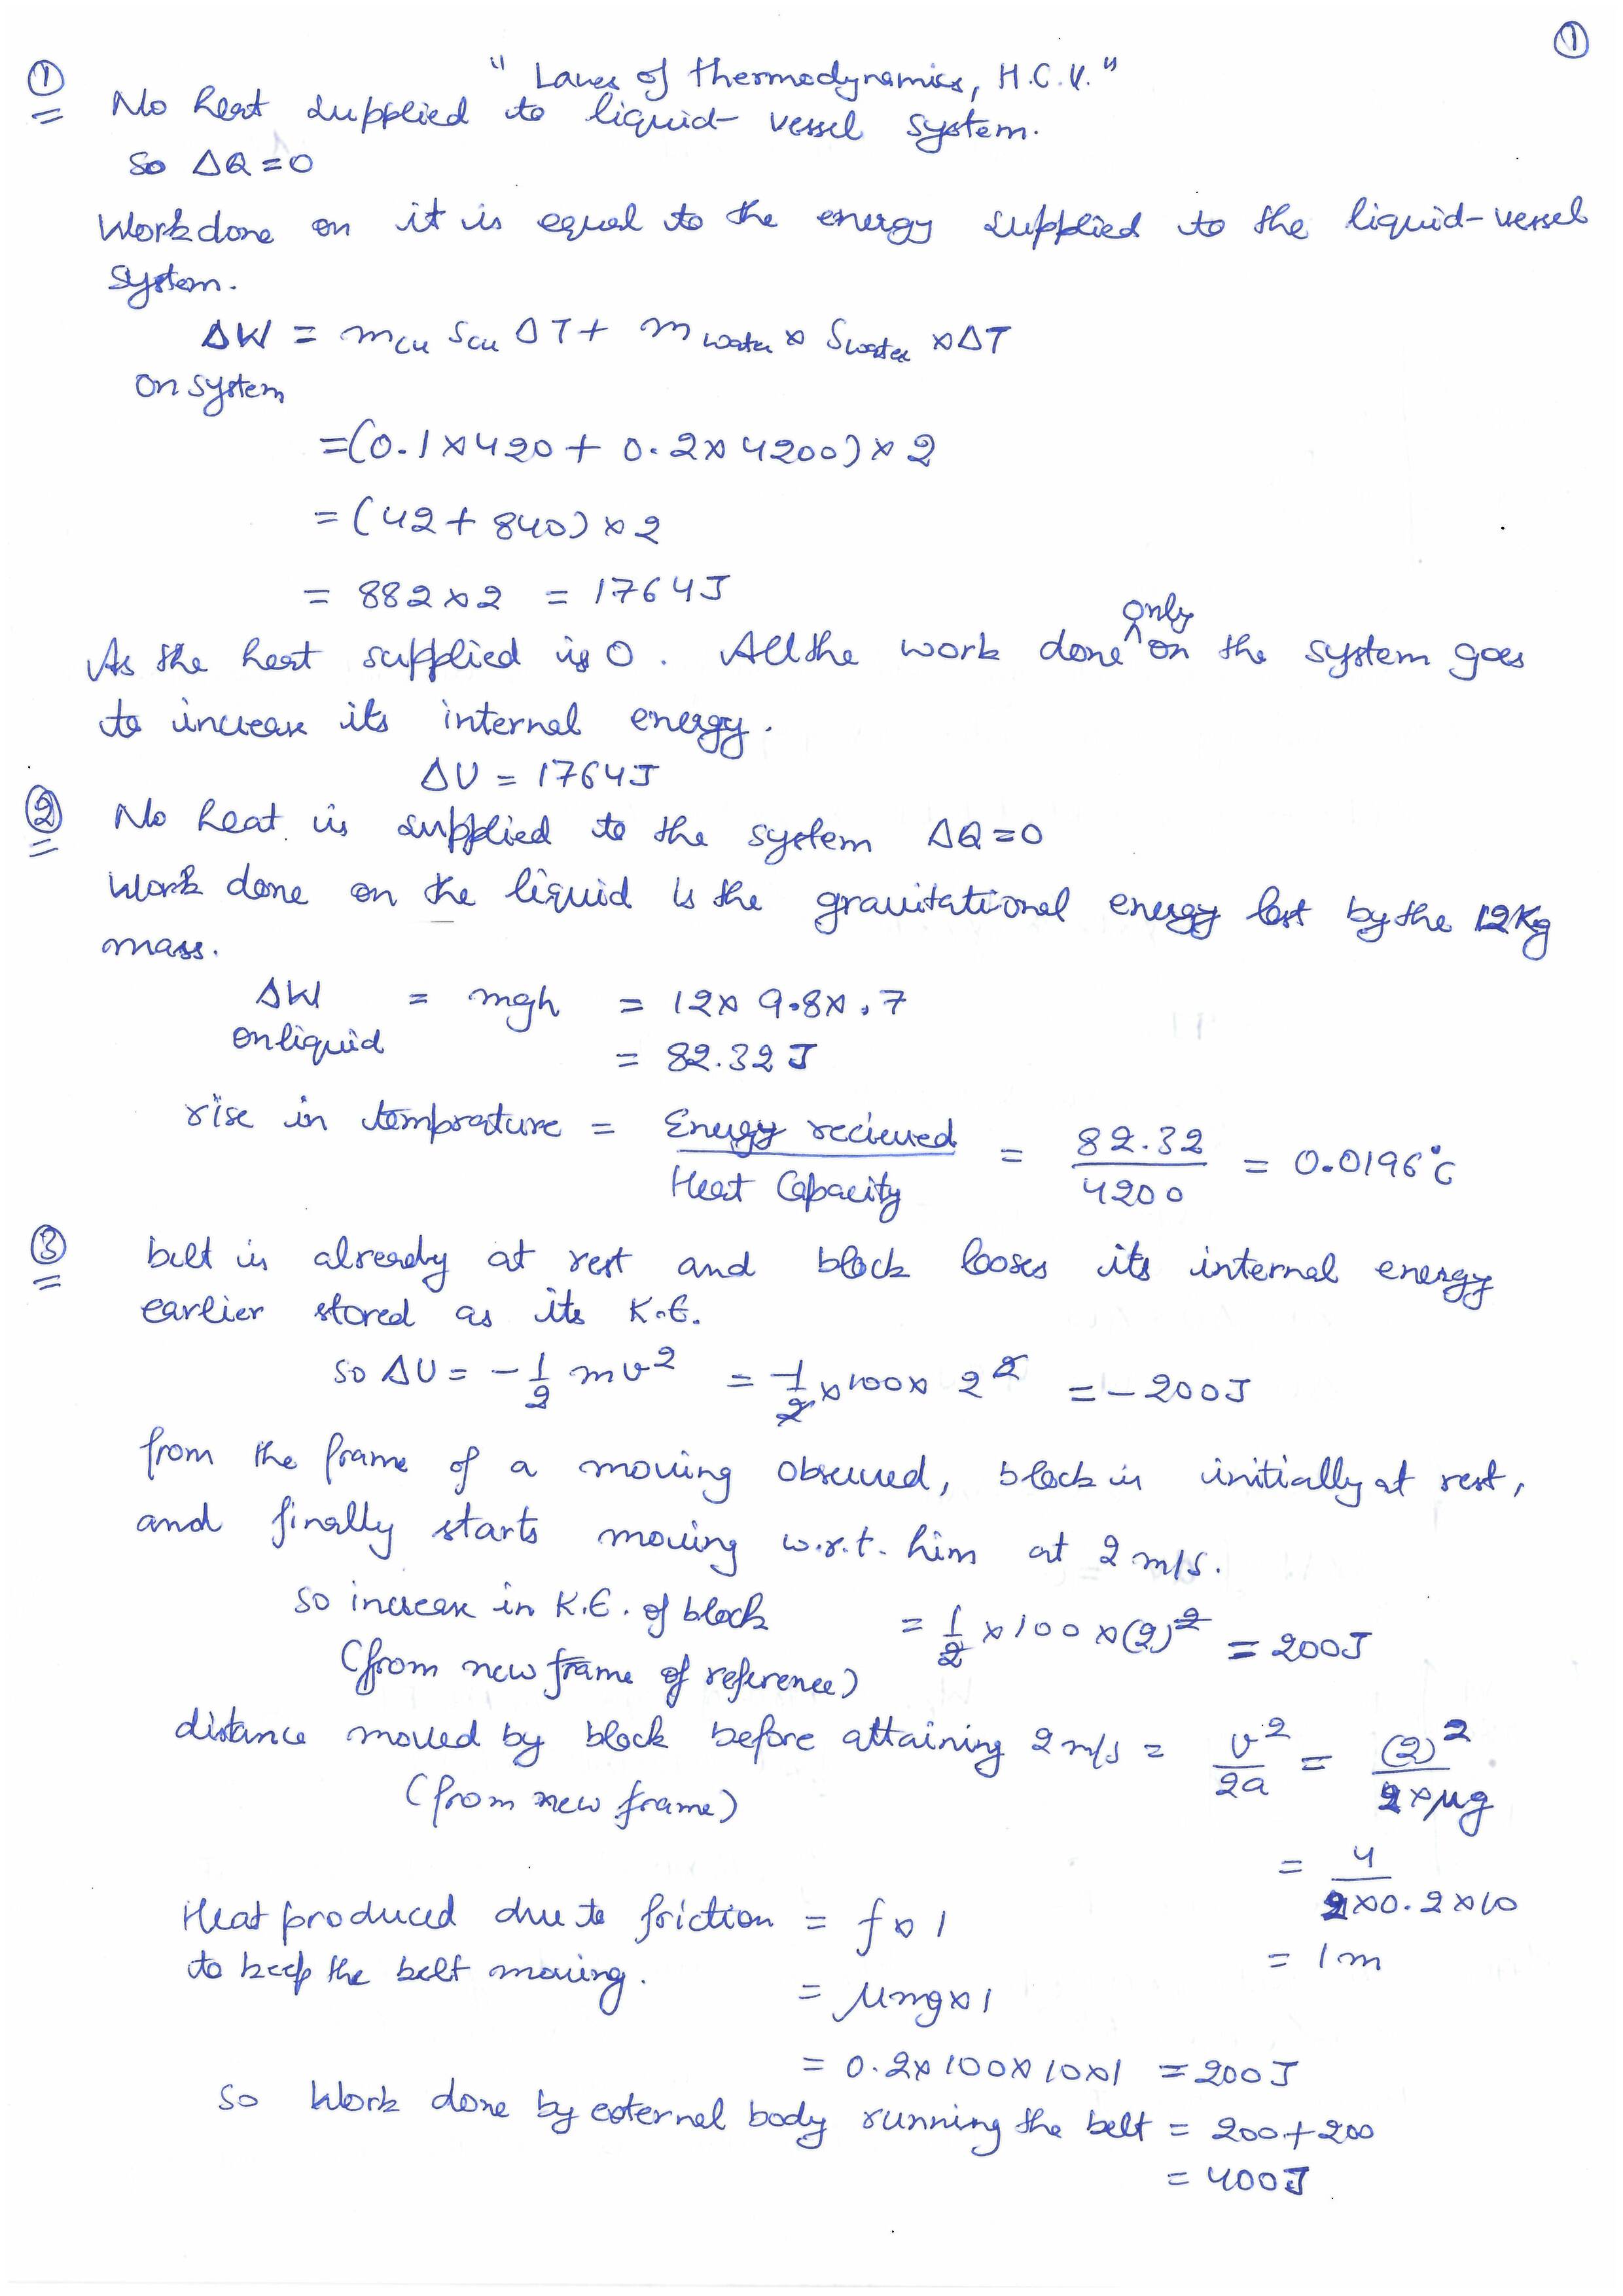 ①
" Laws of thermodynamics, H.C.V."
① No heat supplied to liquid-vessel system.
So ΔQ = 0
Work done on it is equal to the energy supplied to the liquid-vessel
system.
ΔW = mcu Scu ΔT + m water × Swater × ΔT
on system
= (0.1 × 420 + 0.2 × 4200) × 2
= (42 + 840) × 2
= 882 × 2 = 1764 J
As the heat supplied is 0. All the work done only on the system goes
to increase its internal energy.
ΔU = 1764 J
② No heat is supplied to the system ΔQ = 0
Work done on the liquid is the gravitational energy lost by the 12Kg
mass.
ΔW = mgh = 12 × 9.8 × .7
on liquid = 82.32 J
rise in temprature = Energy recieved / Heat Capacity = 82.32 / 4200 = 0.0196°C
③ belt is already at rest and block looses its internal energy
earlier stored as its K.E.
So ΔU = - 1/2 mv² = -1/2 × 100 × 2² = - 200 J
from the frame of a moving observed, block is initially at rest,
and finally starts moving w.r.t. him at 2 m/s.
So increase in K.E. of block = 1/2 × 100 × (2)² = 200 J
(from new frame of reference)
distance moved by block before attaining 2 m/s = v² / 2a = (2)² / 2 × μg
(from new frame)
= 4 / 2 × 0.2 × 10
Heat produced due to friction = f × 1
= 1 m
to keep the belt moving.
= μmg × 1
= 0.2 × 100 × 10 × 1 = 200 J
So Work done by external body running the belt = 200 + 200
= 400 J